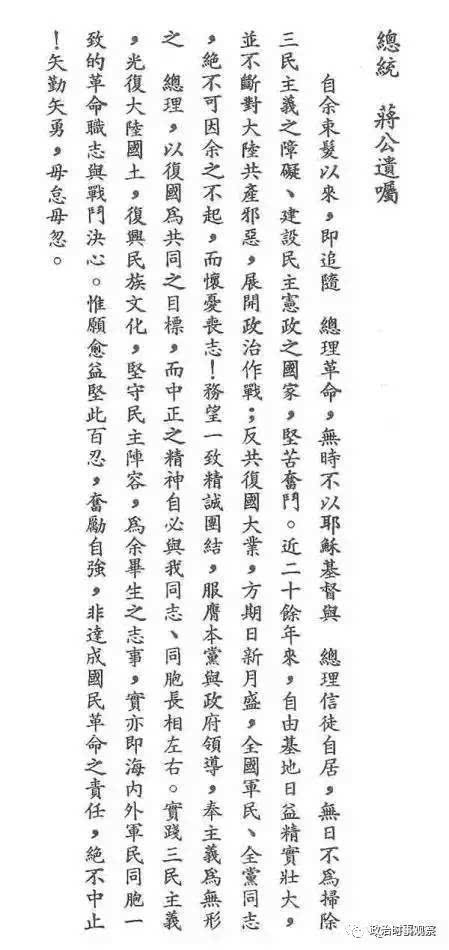 總統　蔣公遺囑
自余束髮以來，即追隨　總理革命，無時不以耶穌基督與　總理信徒自居，無日不為掃除
三民主義之障礙、建設民主憲政之國家，堅苦奮鬥。近二十餘年來，自由基地日益精實壯大，
並不斷對大陸共產邪惡，展開政治作戰；反共復國大業，方期日新月盛，全國軍民、全黨同志
，絕不可因余之不起，而懷憂喪志！務望一致精誠團結，服膺本黨與政府領導，奉主義為無形
之　總理，以復國為共同之目標，而中正之精神自必與我同志、同胞長相左右。實踐三民主義
，光復大陸國土，復興民族文化，堅守民主陣容，為余畢生之志事，實亦即海內外軍民同胞一
致的革命職志與戰鬥決心。惟願愈益堅此百忍，奮勵自強，非達成國民革命之責任，絕不中止
！矢勤矢勇，毋怠毋忽。
政治時事观察